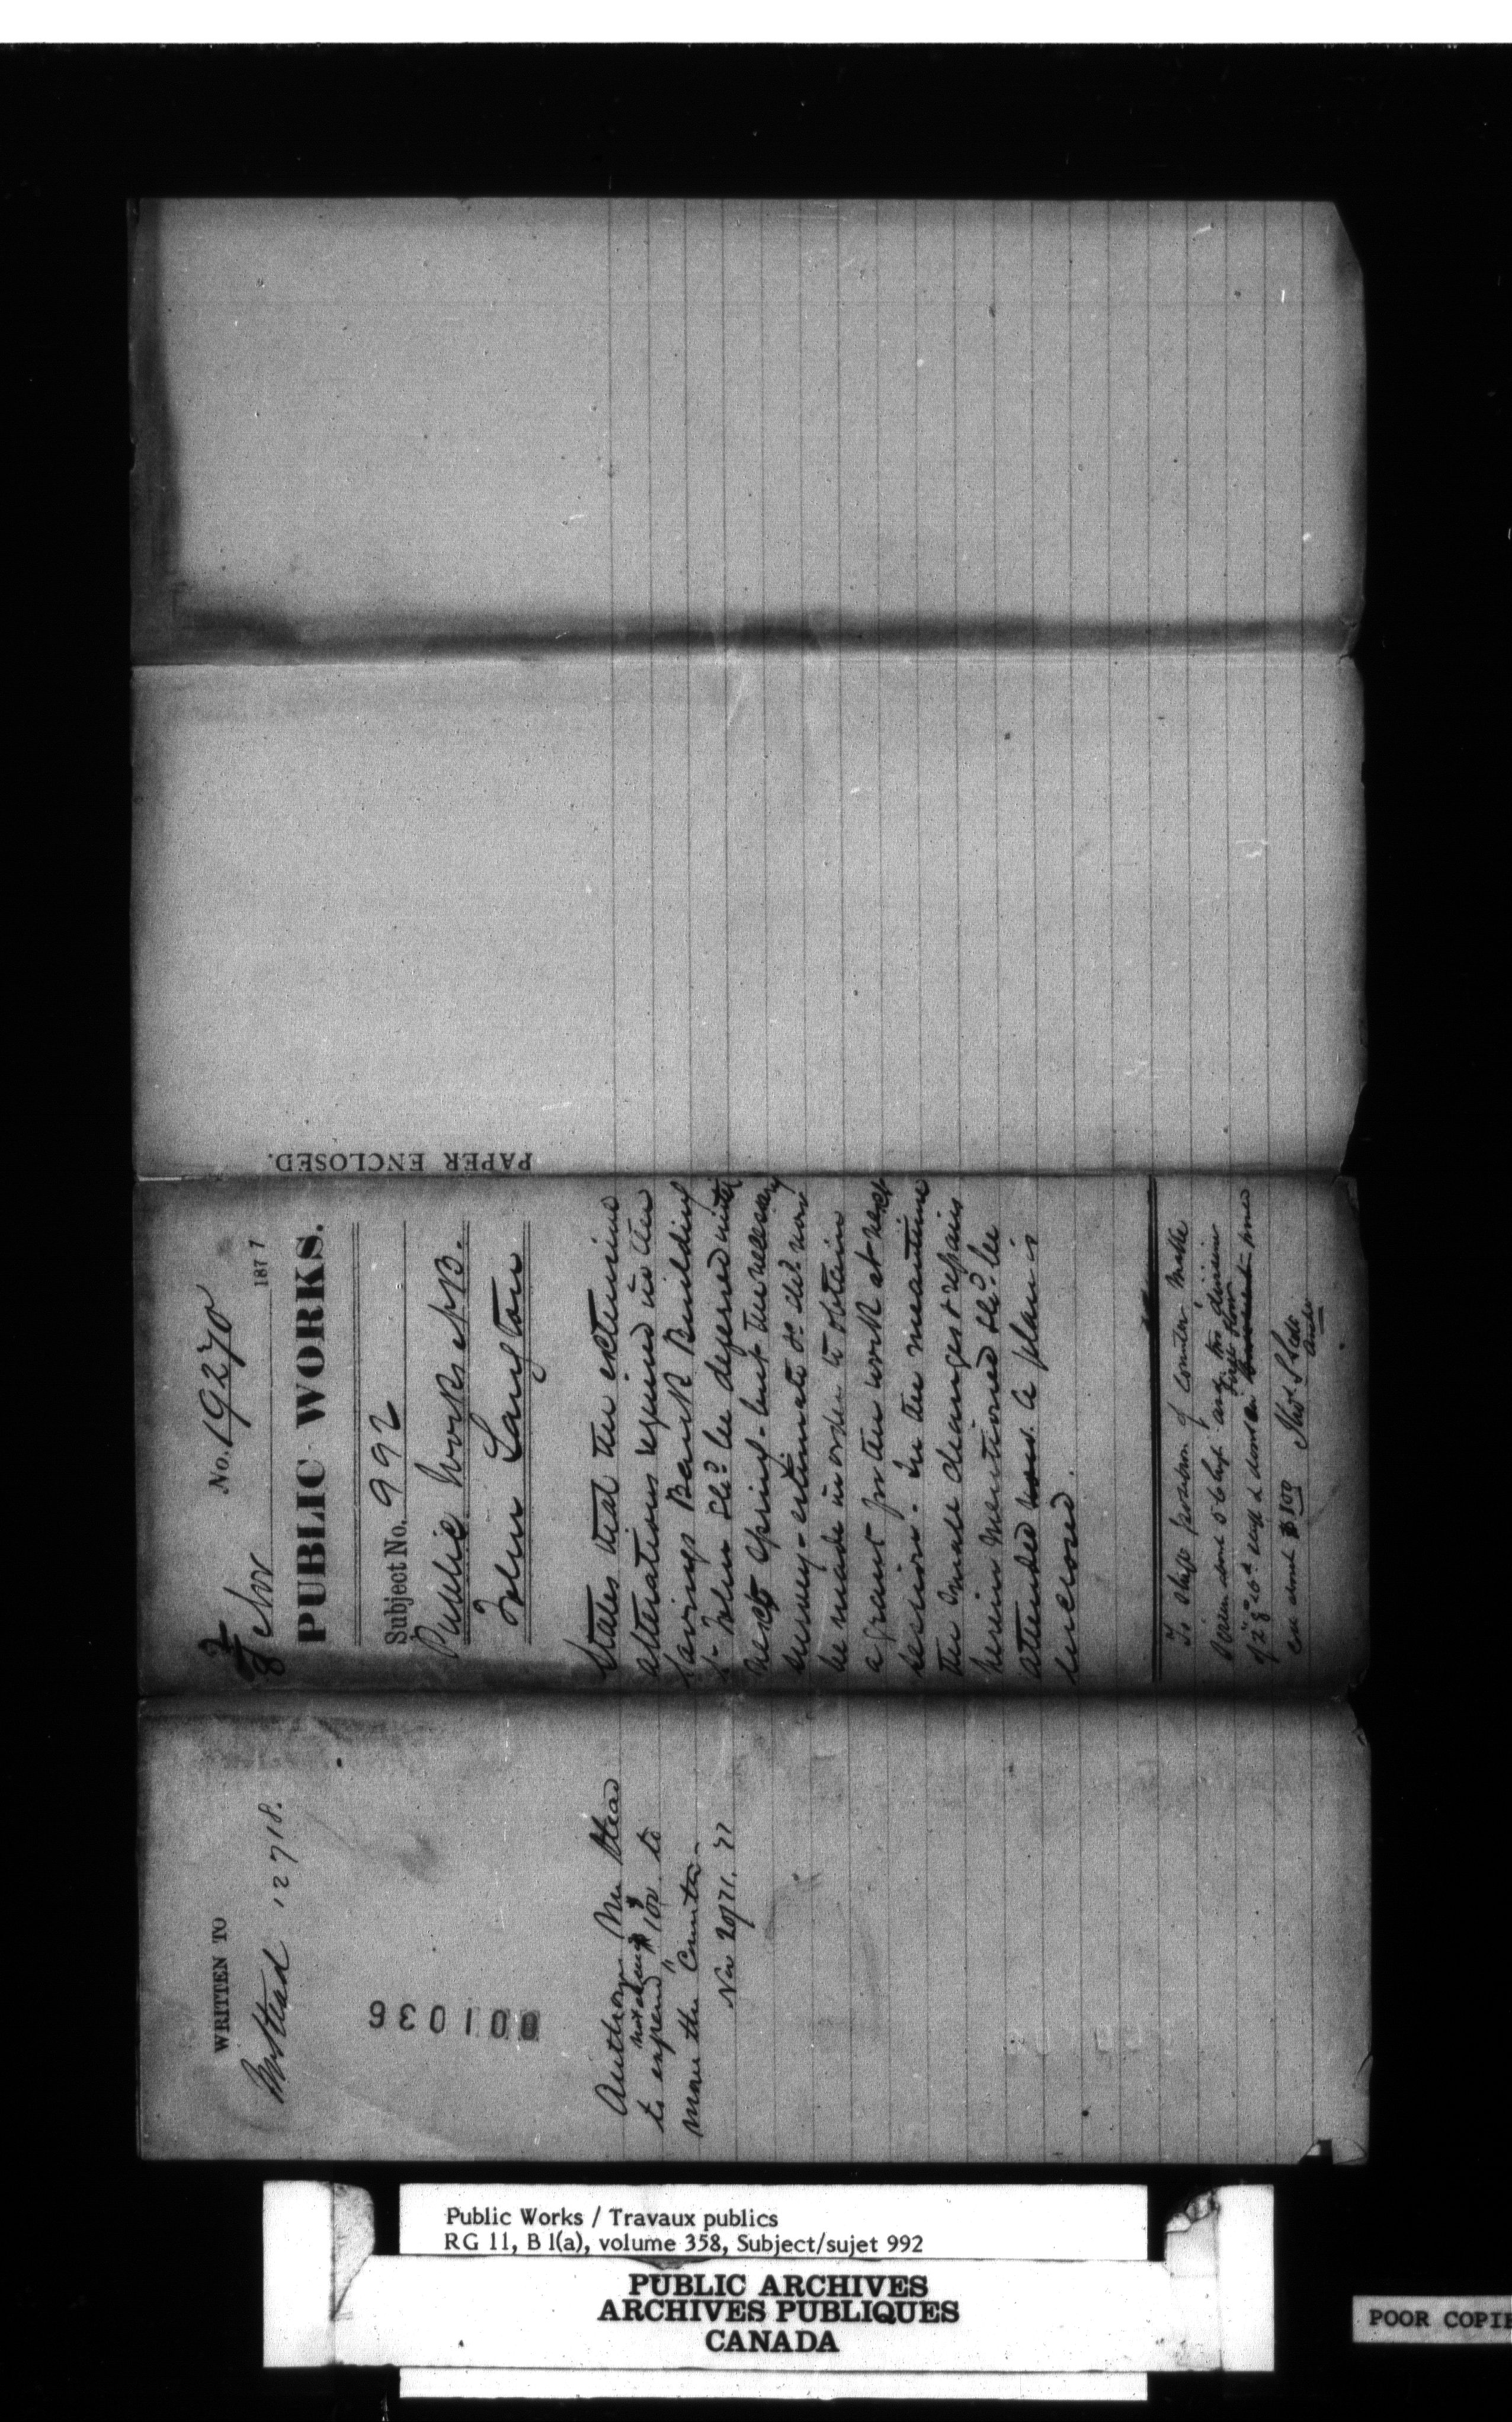 No. 19270
8 Nov 1877
PUBLIC WORKS.
Subject No. 992
Public Works of N.B.
John Langton
States that the extensive
alterations required in the
Savings Bank Building
St John shd. be deferred until
next Spring - but the necessary
survey - estimate &c shd. now
be made in order to obtain
a grant for the work at next
session. In the meantime
the small changes & repairs
herein mentioned shd. be
attended to. A plan is
enclosed.
To change position of Counter Make
Screen about 5 6 high
of 2 8
Thos. S Scott
PAPER ENCLOSED.
WRITTEN TO
Mr Stead 12718.
001036
Authorize Mr Stead
not exceeding
to expend $100 to
move the Counter.
Nov 20/21. 77
Public Works / Travaux publics
RG 11, B 1(a), volume 358, Subject/sujet 992
PUBLIC ARCHIVES
ARCHIVES PUBLIQUES
CANADA
POOR COPIE